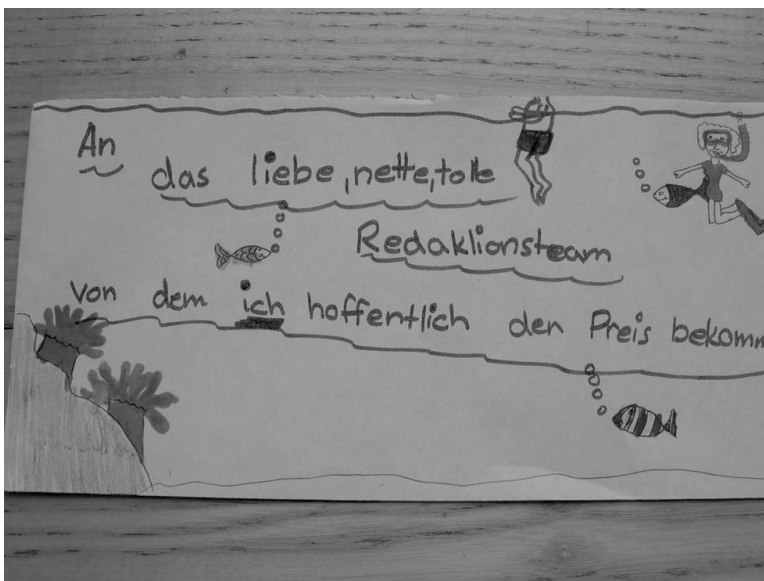 An
das liebe, nette, tolle
Redaktionsteam
von dem ich hoffentlich den Preis bekomm